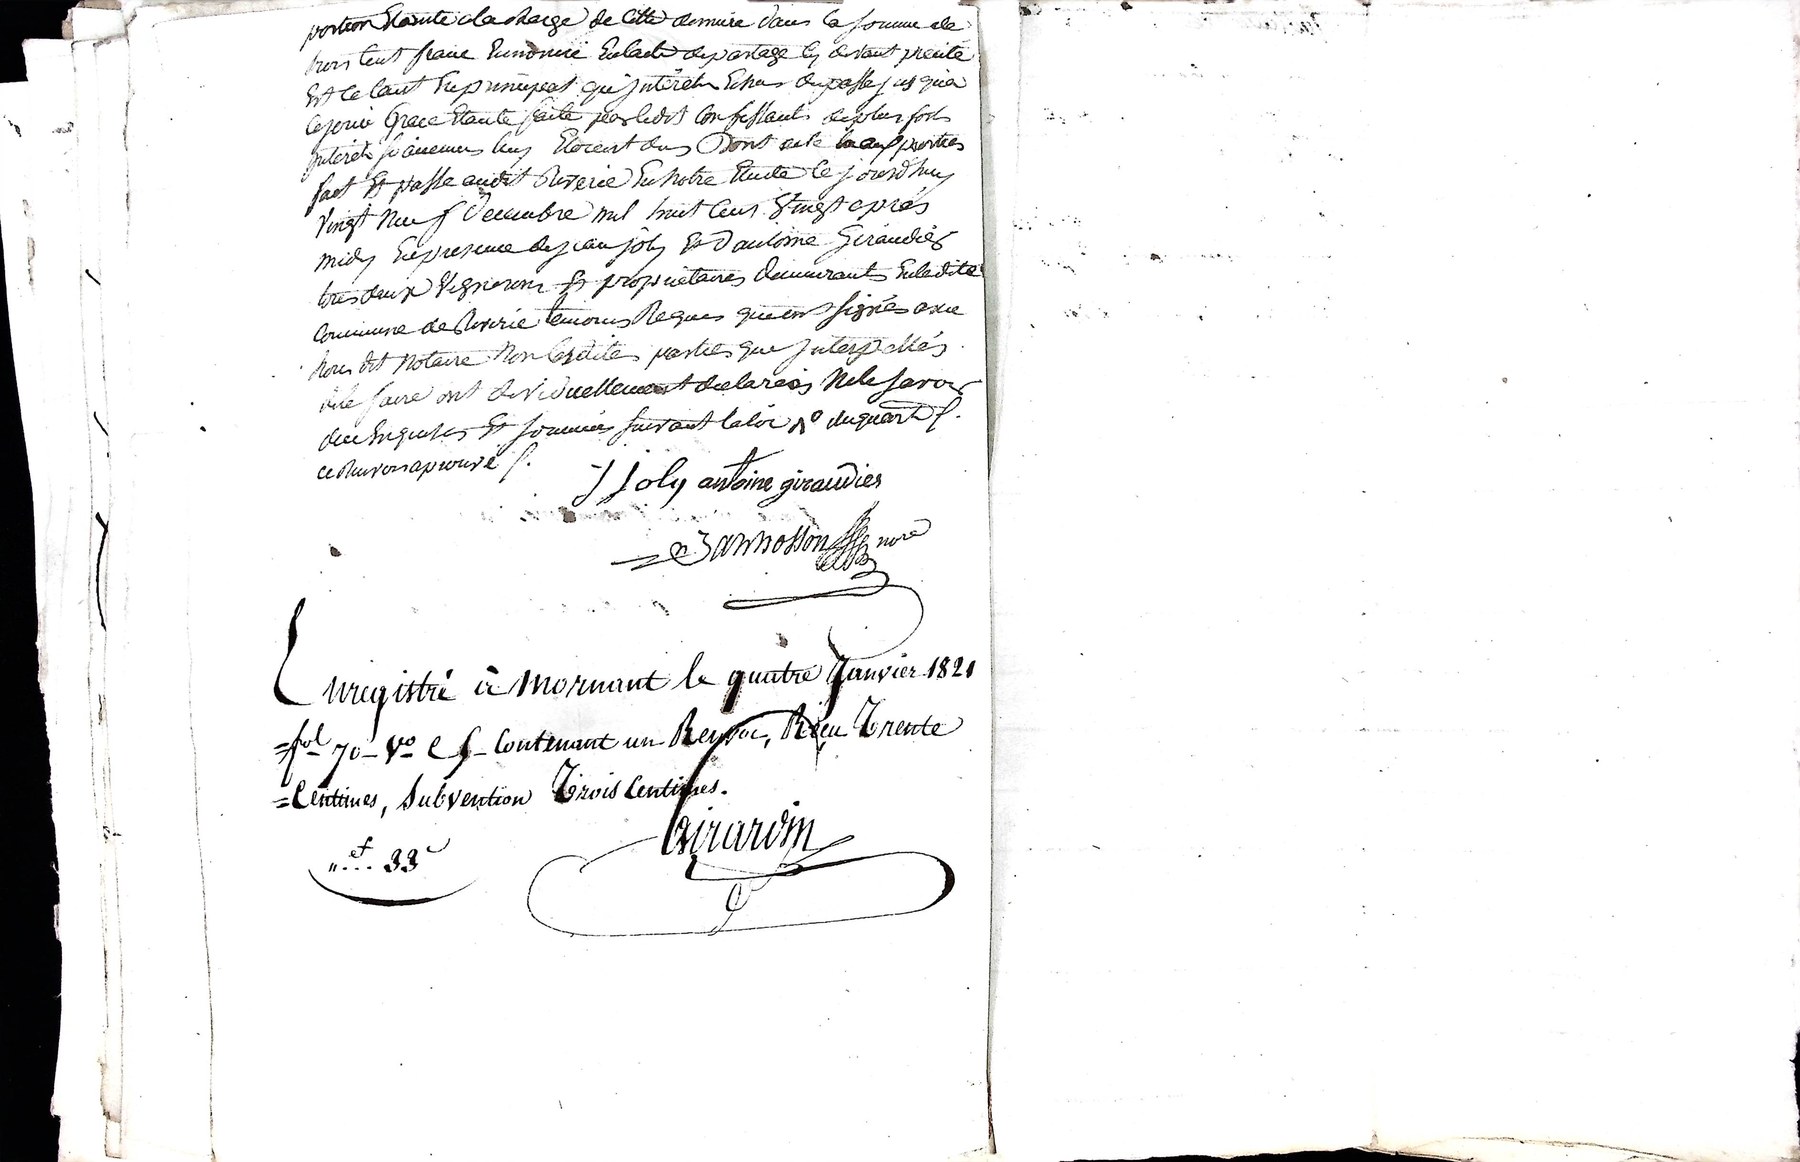 portion Etante a la charge de cette derniere dans la somme de
trois cent franc Ennoncé En lacte de partage cy devant précité
Et ce tant En principeal qu'jntérets Echus du passé jusqu'a
ce jour Grace Etante faite par ledit Confessant de plus forts
jntérets si aucuns luy Etoient dus Dont acte aux parties
fait Et passé audit Riverie En notre Etude Ce jourd'huy
Vingt Neuf Decembre mil huit Cent Vingt après
midy En presence de jean joly Et D'antoine Giraudier
tous deux Vignerons Et propriétaires Demeurants En ladite
Commune de Riverie temoins Requis qui ont signés avec
Nous dit Notaire Non lesdites parties que jnterpellés
de le faire ont declarées Ne le savoir
de ce Enquises Et sommées suivant la loi
ce Renvoi aprouvé
J Joly antoine giraudier
nore
Enregistré à Mornant le quatre Janvier 1821
=fol 70 - Vo C 5 - Contenant un Renvoi, Reçu Trente
=Centimes, Subvention Trois Centimes.
Girardin
"... f 33 c